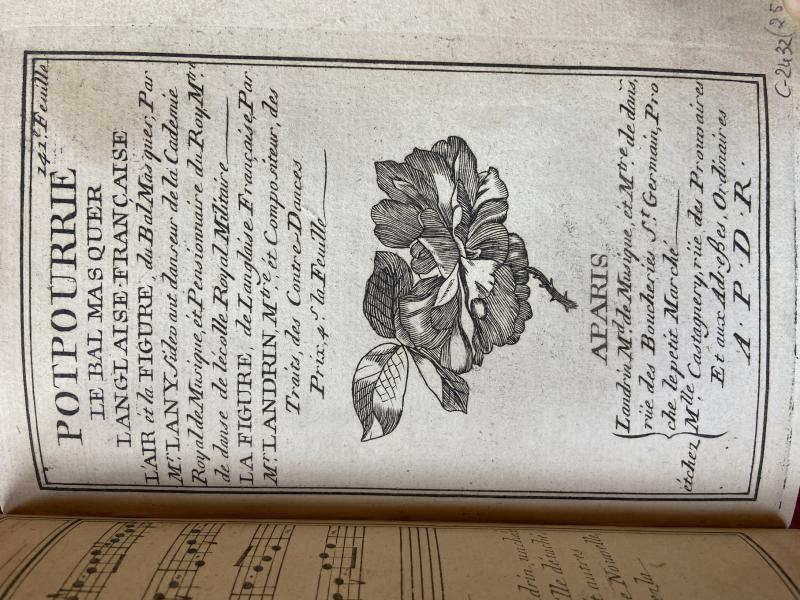 142e. Feuille
POTPOURRIE
LE BAL MASQUER
L'ANGLAISE-FRANCAISE
L'AIR et la FIGURE, du Bal Masques, Par
Mr. LANY, Sidevant danseur de la Cademie
Royal de Musique, et Pensionnaire du Roy, Mtre
de danse de lecolle Royal Militaire
LA FIGURE, de Langlaise Française, Par
Mr LANDRIN, Mtre et Compositeur, des
Traits, des Contre-Dances
Prix, 4s. la Feuille
APARIS
Landrin, Md. de Musique, et Mtre de dans,
rüe des Boucheries St. Germain, Pro
che le petit Marché
et chez Mlle Castagnery, rüe des Prouvaires
Et aux Adreßes, Ordinaires
A. P. D. R.
C-2432(25